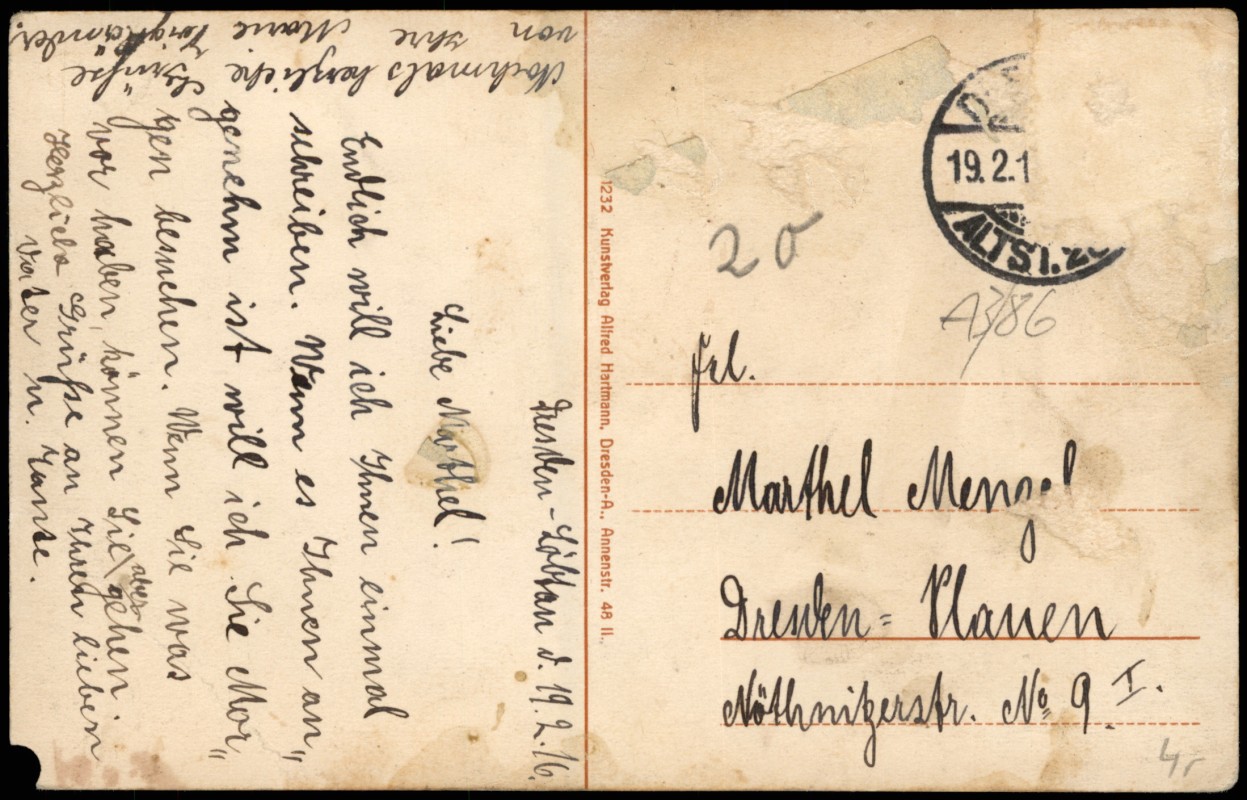 Dresden-Löbtau d. 19.2.16.
Liebe Marthel!
Endlich will ich Ihnen einmal
schreiben. Wenn es Ihnen an„
genehm ist will ich Sie Mor„
gen besuchen. Wenn Sie was
vor haben, können Sie aber gehen.
Herzliche Grüße an Ihren lieben
Vater u. Tante.
Nochmals herzliche Grüße
von Ihre Marie
1232 Kunstverlag Alfred Hartmann, Dresden-A., Annenstr. 48 II.
19.2.1
ALTST. 2
20
A3/86
Frl.
Marthel Mengel
Dresden= Plauen
Nöthnitzerstr. No 9 I.